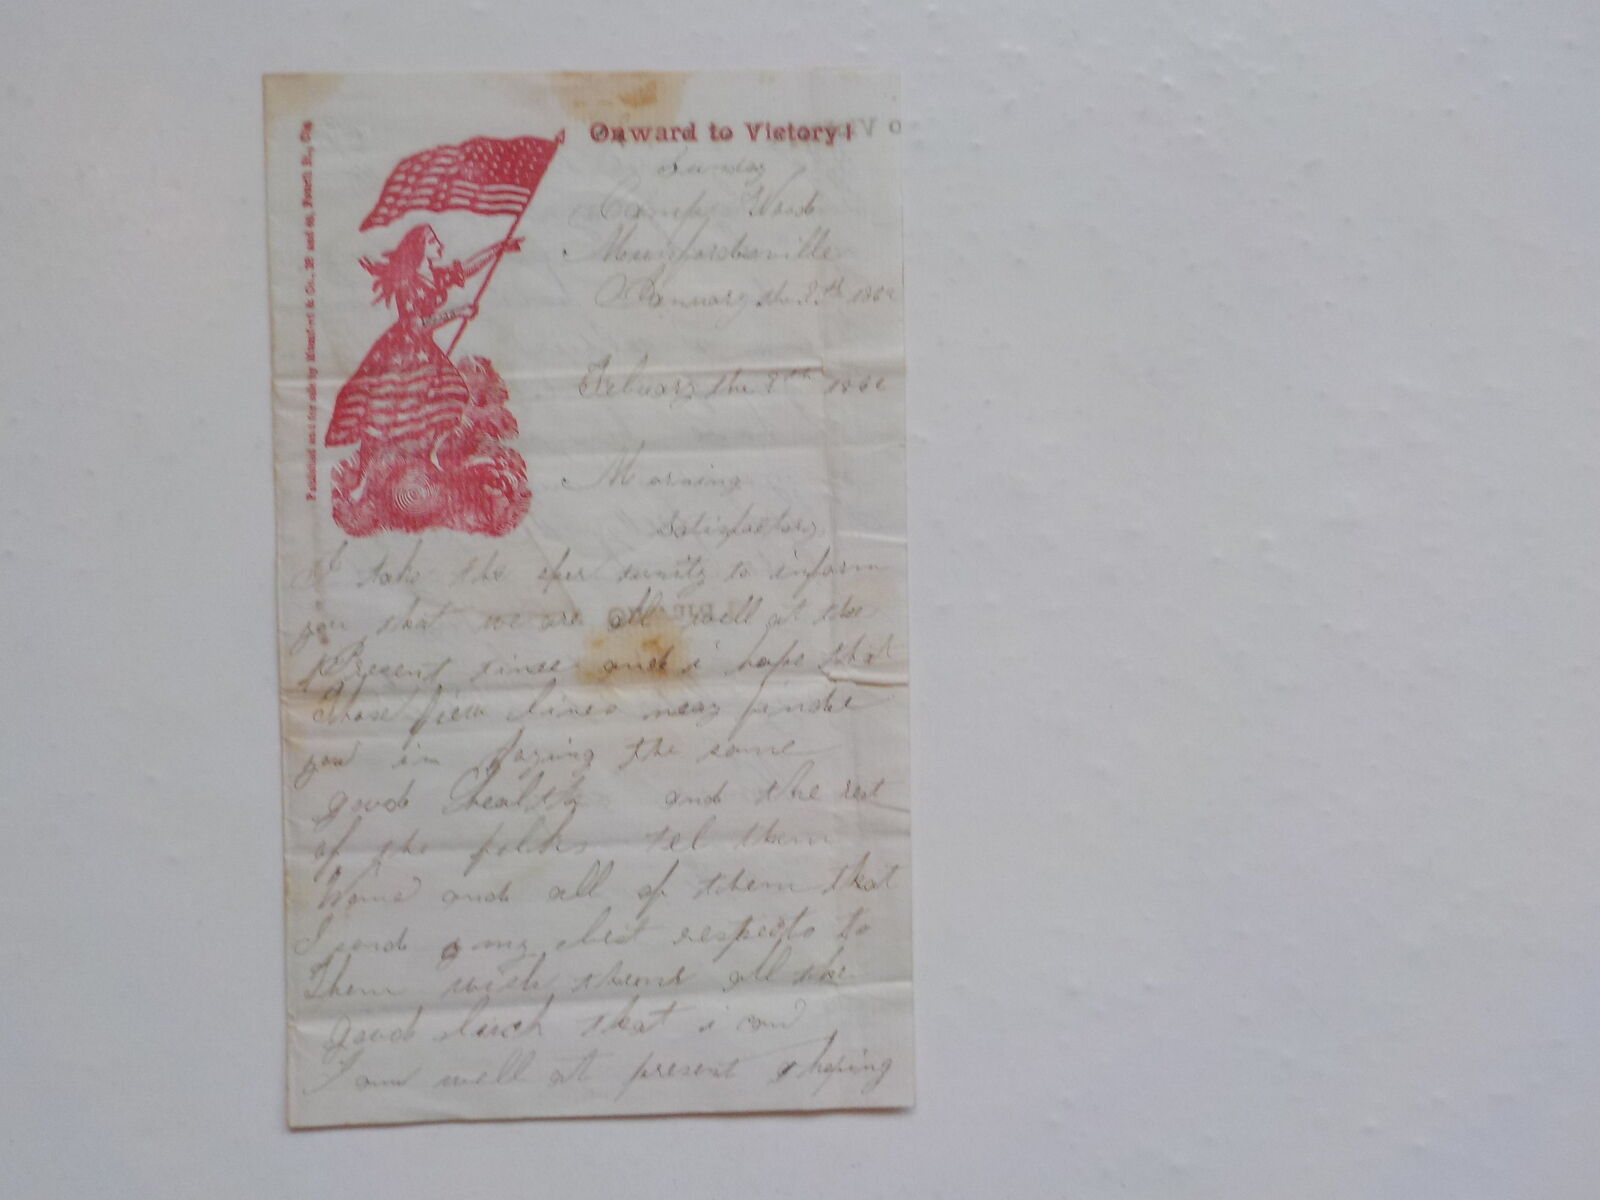 Onward to Victory!
Sunday
Camp Wood
Mounfordsville
January the 9th 1862
Febuary the 9th 1862
Morning
Satisfactory
I take the oper tunity to inform
you that we are all well at the
Present time and i hope that
those few lines may finde
you in the same
good health and the rest
of the folks tel them
and all of them that
I send my best respects to
Them wish them all the
good luck that i can
I am well at present hoping
Published and for sale by Mumford & Co., 38 and 40, Fourth St., Cin.